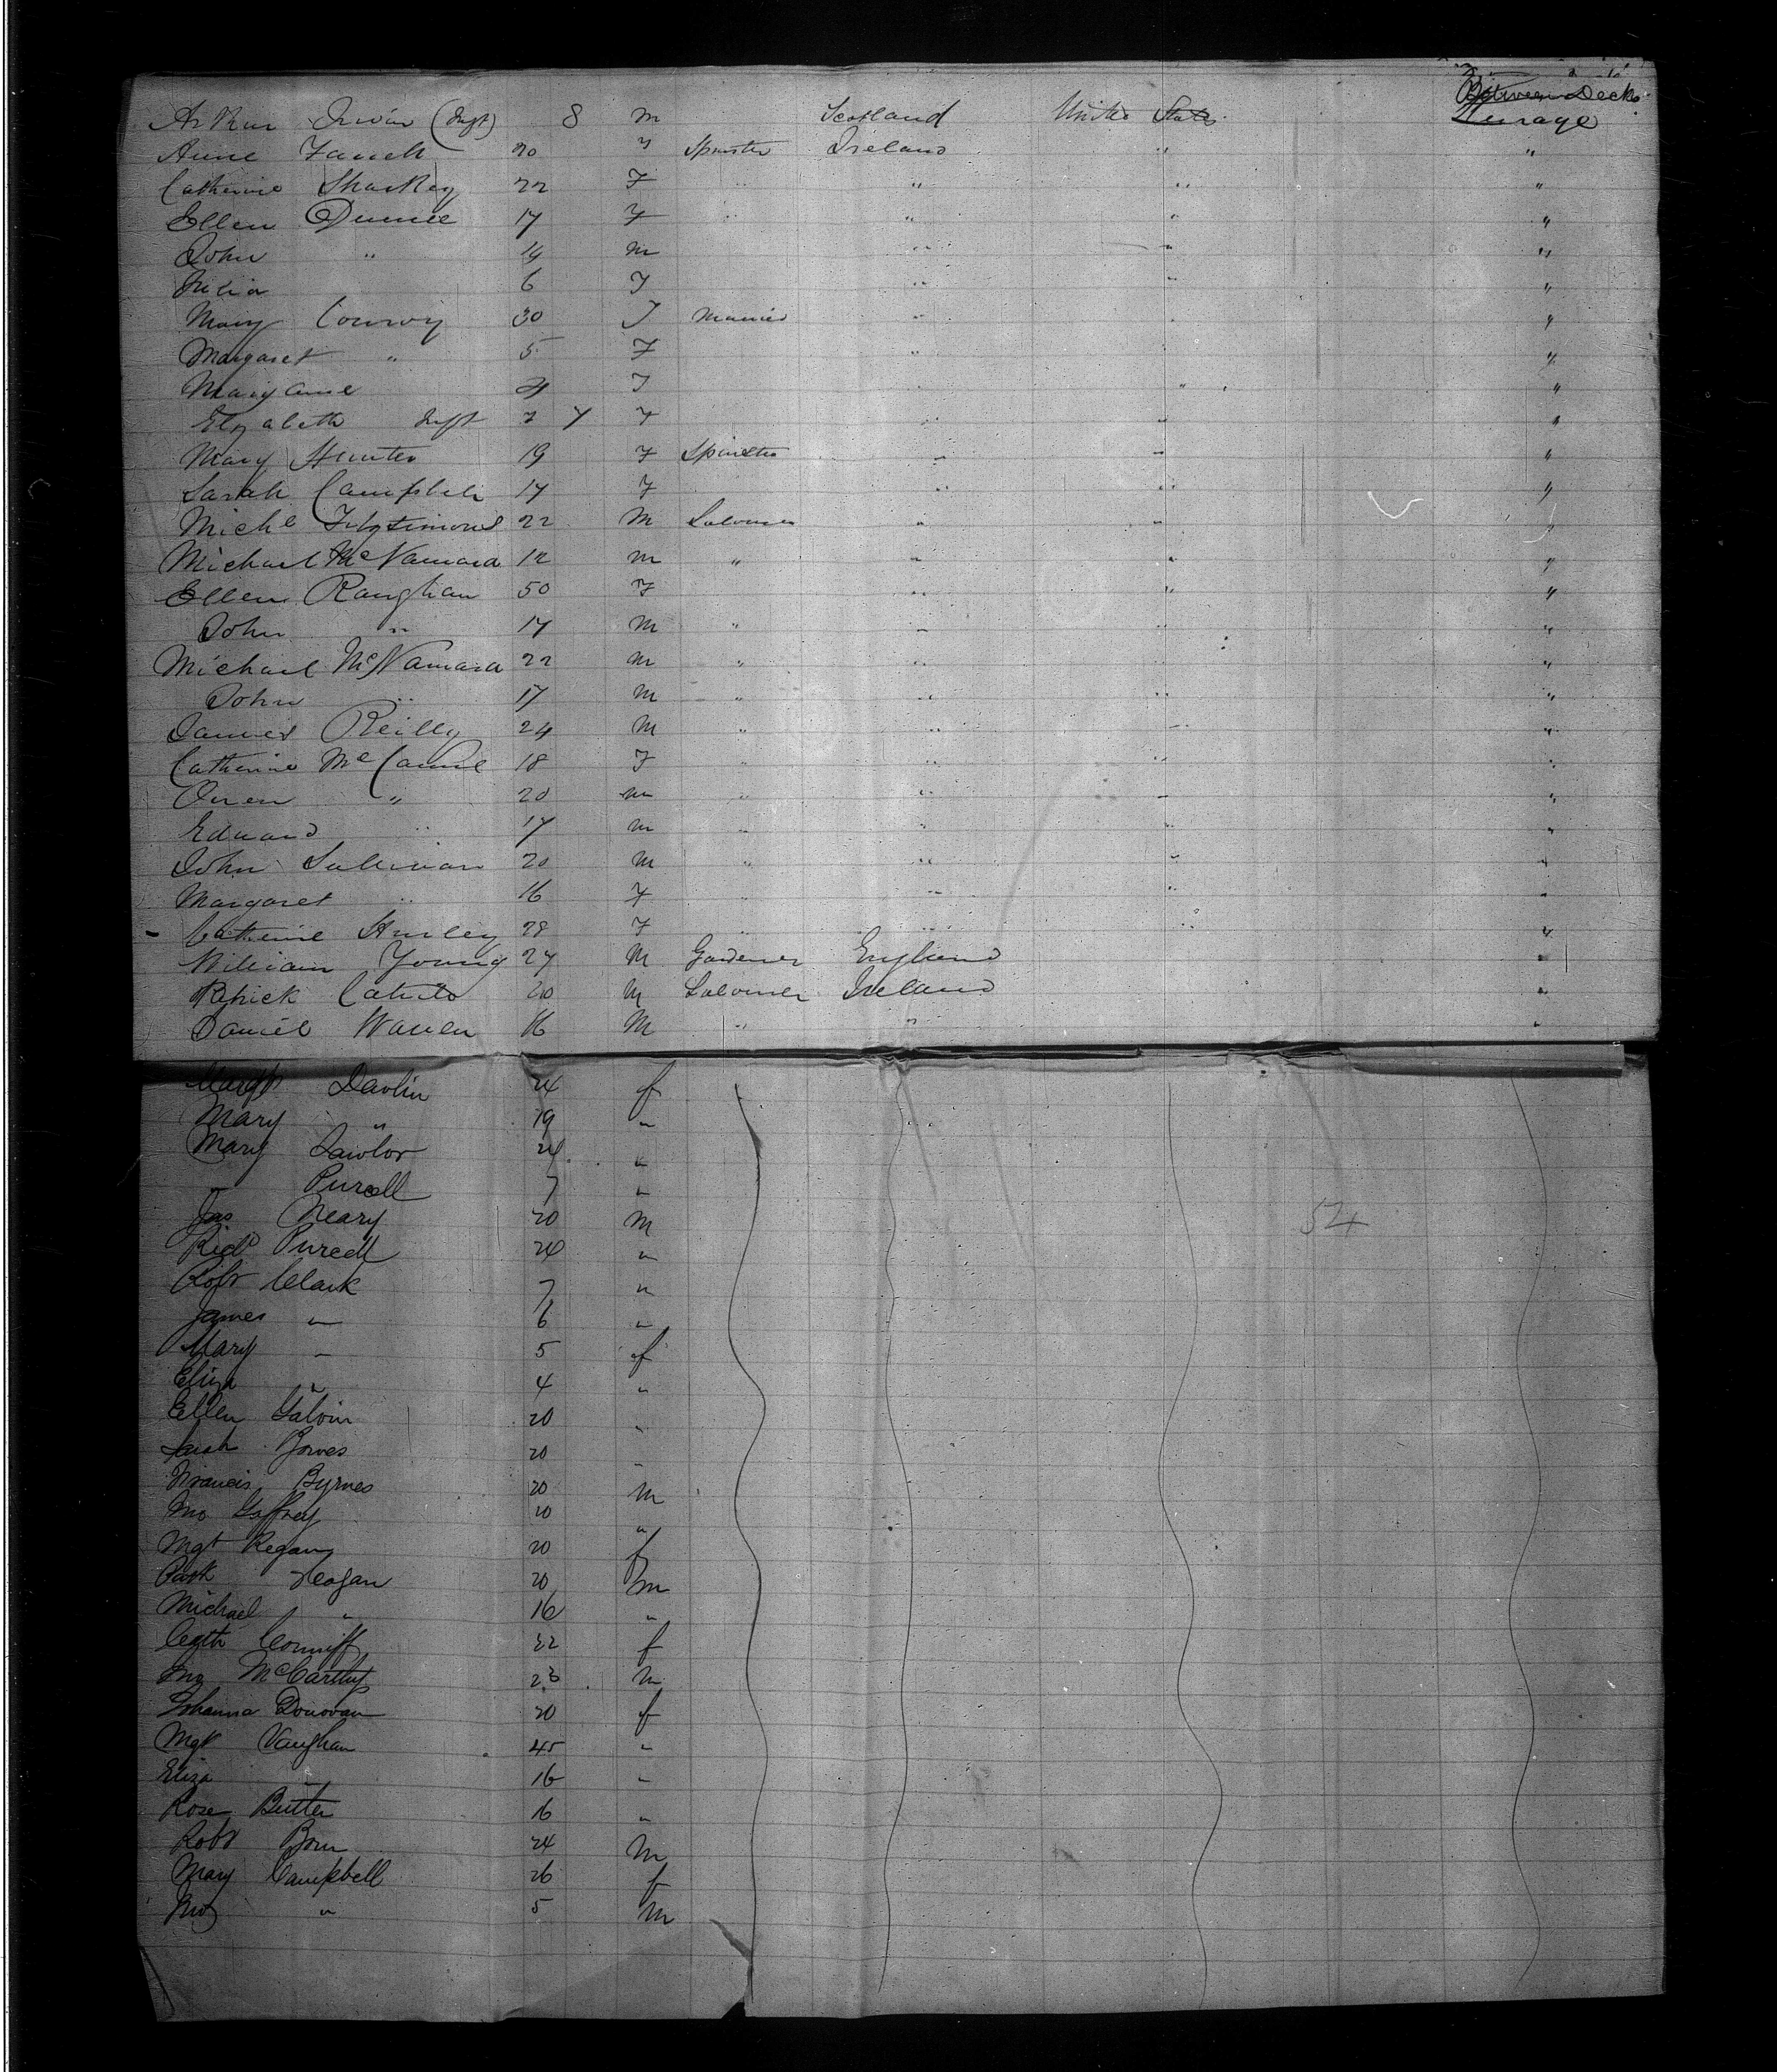 Between Decks
Arthur Irwin (Inft) 8 m Scotland United States Steerage
Anne 20 " Spinster Ireland " "
Catherine Sharkey 22 F " " " "
Ellen Dunne 17 F " " " "
John " 14 m " " "
Julia 6 F " " "
Mary Conroy 30 F Married " " "
Margaret " 5 F " " "
Maryanne 4 F " " "
Elizabeth Inft 7 F " " "
Mary Hunter 19 F Spinster " " "
Sarah Campbell 17 F " " "
Michl Fitzsimons 22 M Labourer " " "
Michael McNamara 12 m " " " "
Ellen Raughan 50 F " " "
John " 17 M " " " "
Michael McNamara 22 m " " " "
John " 17 M " " " "
James Reilly 24 M " " " "
Catherine McCanne 18 F " " " "
Owen " 20 m " " " "
Edward " 17 m " " " "
John Sullivan 20 M " " " "
Margaret " 16 F " " "
- Catherine Hurley 28 F " " " "
William Young 27 M Gardener England "
Patrick 20 M Labourer Ireland "
Daniel Warren 16 M " " "
Margt Davlin 24 f
Mary " 19 "
Mary Lawlor 24 "
" Purcell 7 "
Jas Neary 20 M 54
Richd Purcell 24 "
Robt Clark 7 "
James " 6 "
Mary " 5 f
Eliza " 4 "
Ellen Galvin 20 "
Sarah Bowes 20 "
Francis Byrnes 20 m
Jno Gaffney 20 "
Mgt Regan 20 f
Patk Reagan 20 m
Michael " 16 "
Cath Conniff 22 f
Jno McCarthy 23 m
Johanna Donovan 20 f
Mgt Vaughan 45 "
Eliza " 16 "
Rose Butler 16 "
Robt 24 M
Mary Campbell 26 f
Jno " 5 M